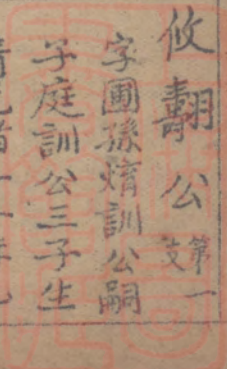 攸翿公 第一支
字圃孫煟訓公嗣
子庭訓公三子生